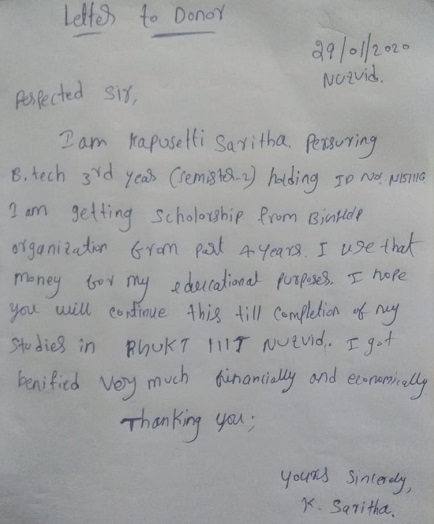 Letter to Donor
29/01/2020
Nuzvid.
Respected Sir,
I am Kapusetti Saritha. Persuring
B.tech 3rd year (semister-2) holding ID No.
I am getting Scholorship from
organization from past 4 years. I use that
money for my educational purposes. I hope
you will continue this till completion of my
studies in RGUKT IIIT Nuzvid. I got
benified very much financially and economically
Thanking you;
Yours Sincerely,
K. Saritha.